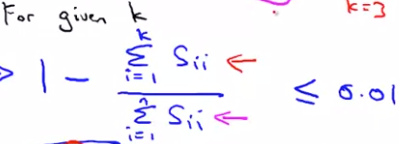 For given k
k=3
> 1 - \frac{\sum_{i=1}^{k} S_{ii} ←}{\sum_{i=1}^{n} S_{ii} ←} ≤ 0.01